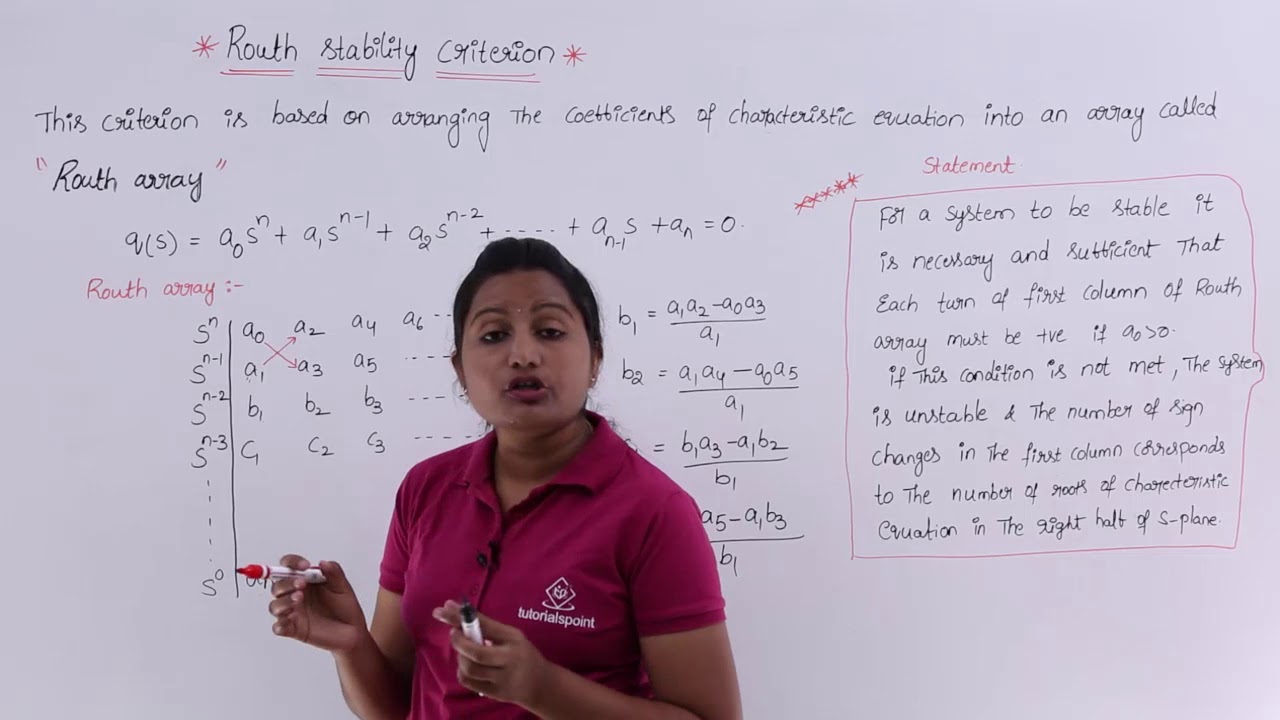 * Routh stability criterion *
This criterion is based on arranging The coefficients of characteristic equation into an array called
"Routh array"
q(s) = a₀sⁿ + a₁sⁿ⁻¹ + a₂sⁿ⁻² + ..... + aₙ₋₁s + aₙ = 0.
Routh array :-
sⁿ | a₀ a₂ a₄ a₆ ...
sⁿ⁻¹ | a₁ a₃ a₅ ....
sⁿ⁻² | b₁ b₂ b₃ ---
sⁿ⁻³ | c₁ c₂ c₃ ----
s⁰
b₁ = (a₁a₂ - a₀a₃) / a₁
b₂ = (a₁a₄ - a₀a₅) / a₁
= (b₁a₃ - a₁b₂) / b₁
a₅ - a₁b₃ / b₁
***** Statement
For a system to be stable it
is necessary and sufficient That
Each turn of first column of Routh
array must be +ve if a₀>0.
if This condition is not met, The system
is unstable & The number of sign
changes in The first column corresponds
to The number of roots of charecteristic
Equation in The right half of S-plane.
tutorialspoint